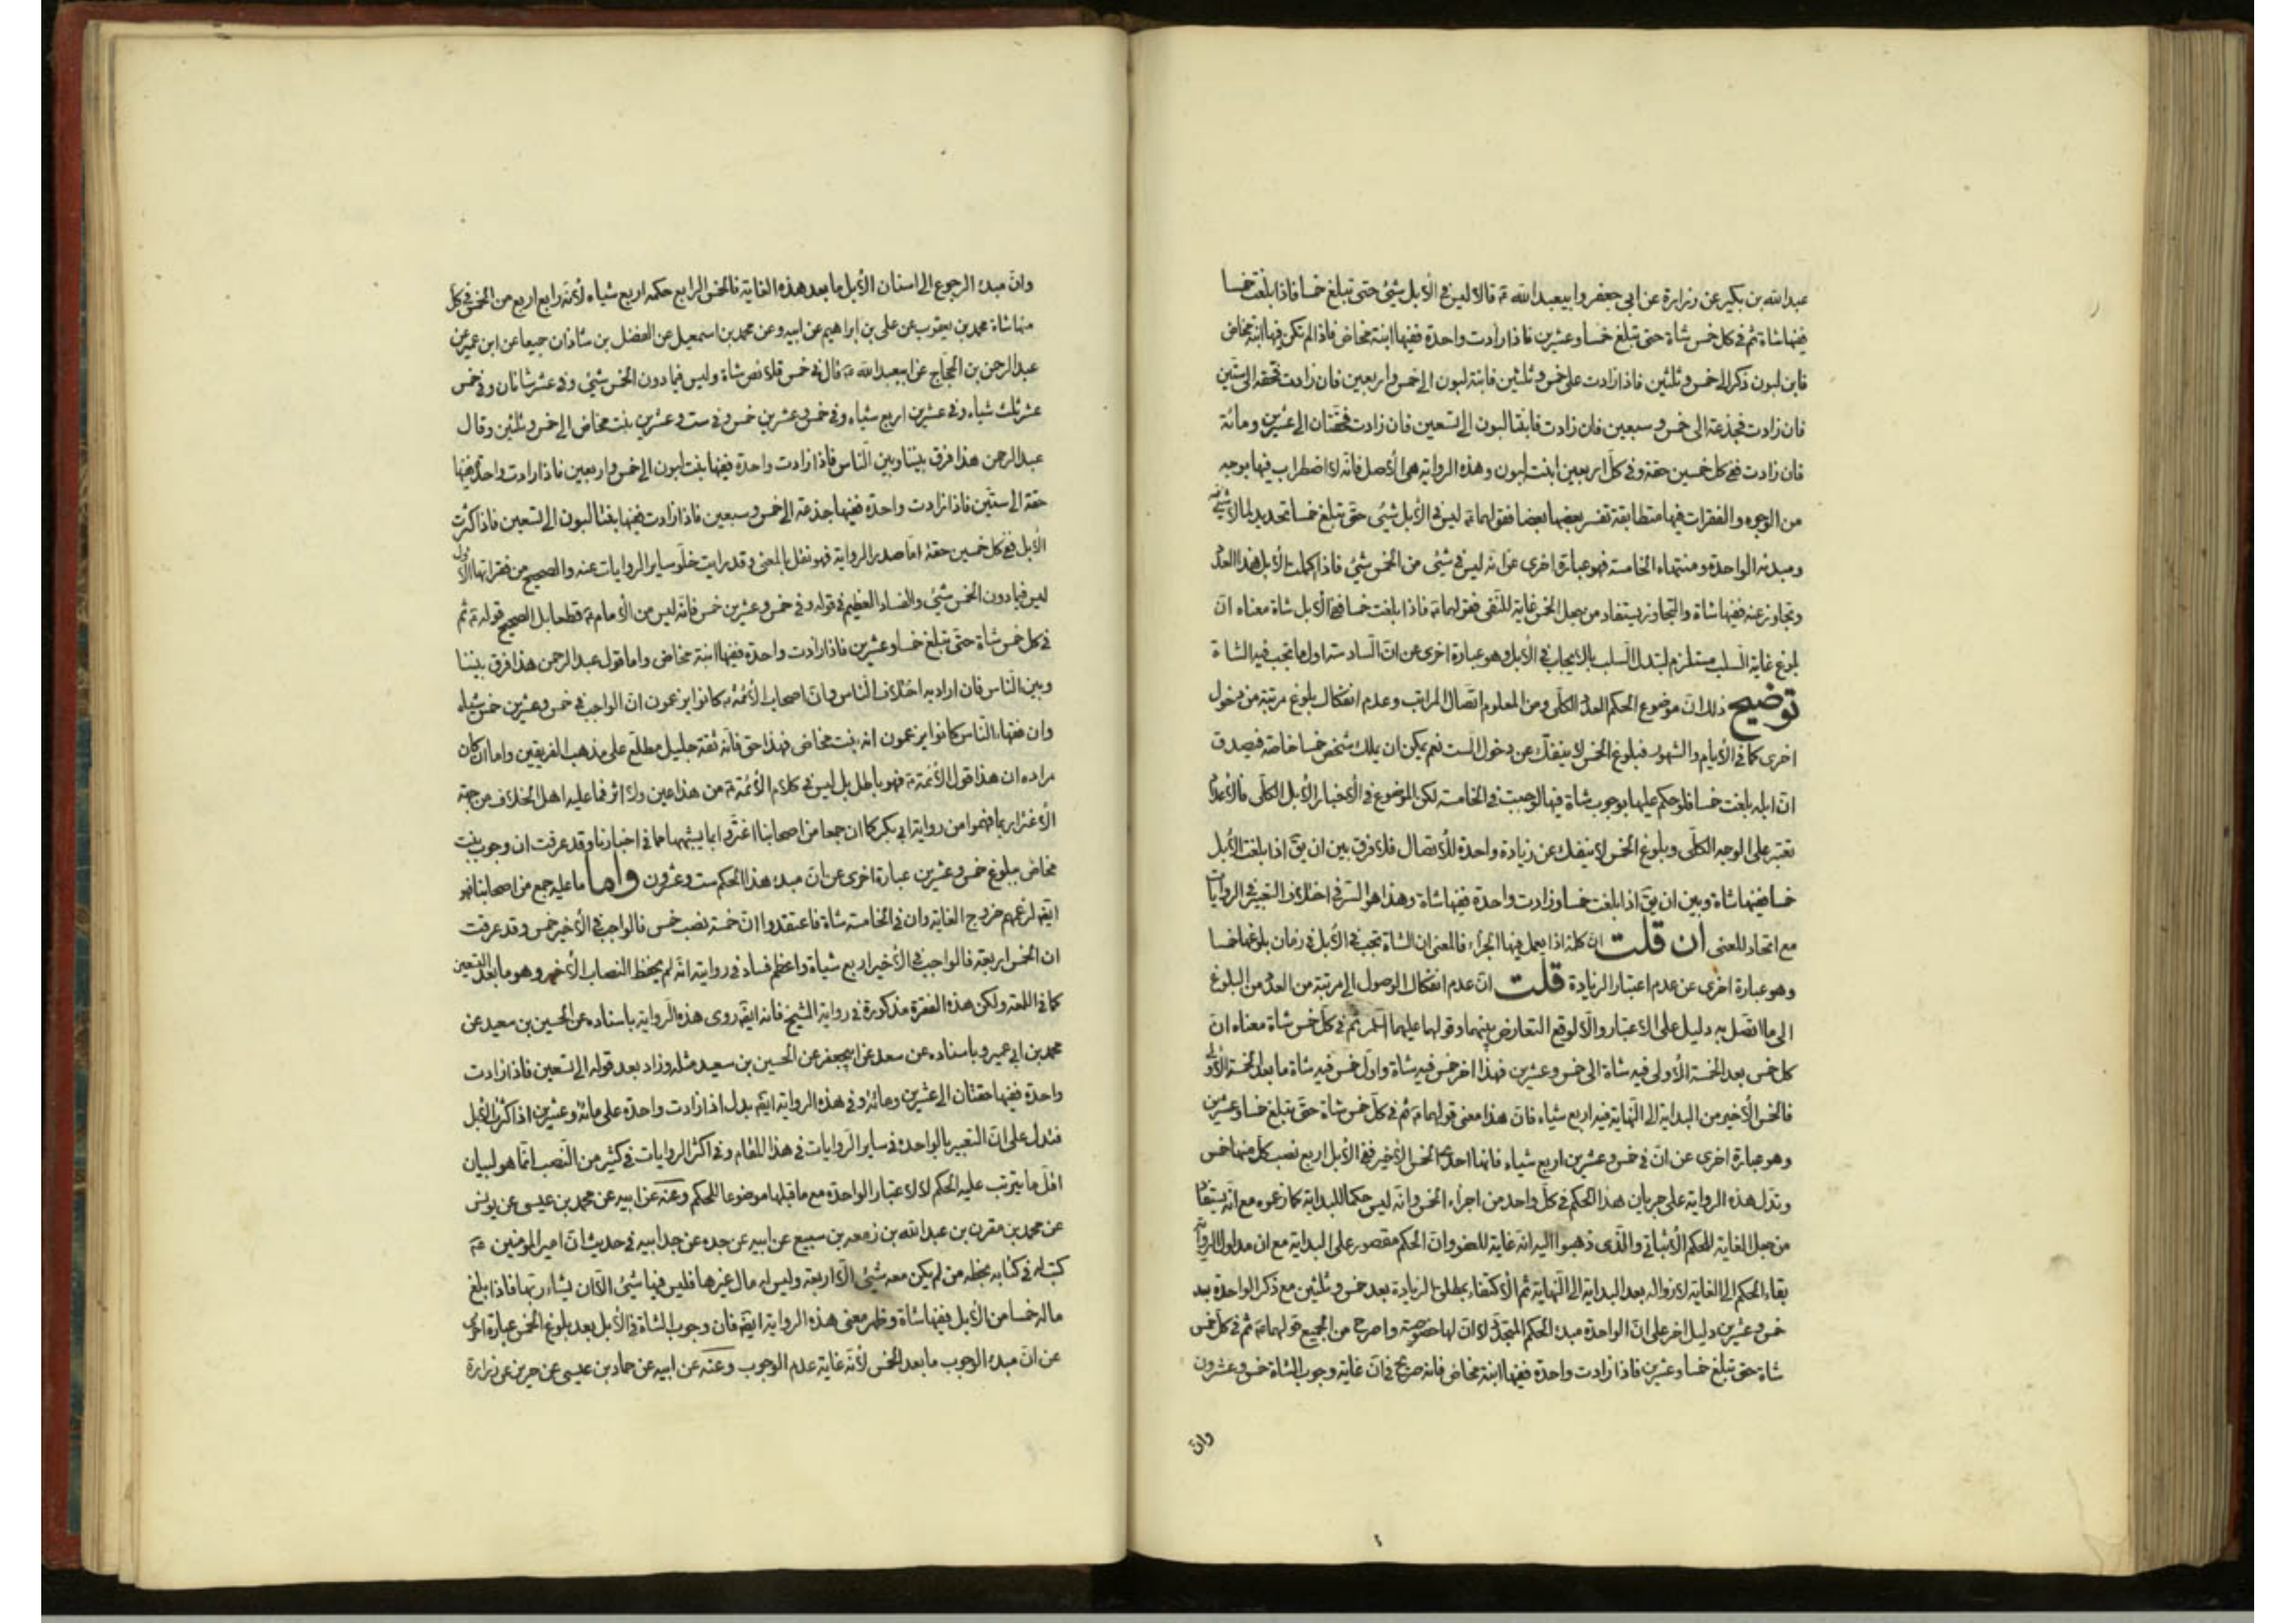 عبد الله بن بكير عن زرارة عن ابي جعفر وابيعبد الله ع قالا ليس في الأبل شيئ حتى تبلغ خمسا فاذا بلغت خمسا
ففيها شاة ثم في كل خمس شاة حتى تبلغ خمسا وعشرين فاذا زادت واحدة ففيها ابنة مخاض فاذا لم تكن فيها ابنة مخاض
فابن لبون ذكر الى خمس وثلثين فاذا زادت على خمس وثلثين فابنة لبون الى خمس واربعين فان زادت فحقة الى ستين
فان زادت فجذعة الى خمس وسبعين فان زادت فابنتا لبون الى تسعين فان زادت فحقتان الى عشرين ومائة
فان زادت ففي كل خمسين حقة وفي كل اربعين ابنت لبون وهذه الرواية هى الأصل فانه لا اضطراب فيها بوجه
من الوجوه والفقرات فيها متطابقة تفسر بعضها بعضا فقولهما ع ليس في الأبل شيئ حتى تبلغ خمسا تحديد لما لا شيئ فيه
ومبدئه الواحدة ومنتهاه الخامسة فهو عبارة اخرى عن انه ليس في شيئ من الخمس شيئ فاذا كملت الأبل هذا العدد
وتجاوز عنه ففيها شاة والتجاوز يستفاد من جعل الخمس غاية للنفى فقولهما ع فاذا بلغت خمسا ففي الأبل شاة معناه ان
بلوغ غاية السلب مستلزم لتبدل السلب بالايجاب في الأبل وهو عبارة اخرى عن ان السادسة اول ما تجب فيه الشاة
توضيح ذلك ان موضوع الحكم العدد الكلى ومن المعلوم اتصال المراتب وعدم انفكاك بلوغ مرتبة من دخول
اخرى كما في الأيام والشهور فبلوغ الخمس لا ينفك عن دخول الست نعم يمكن ان يملك شخص خمسا خاصة فيصدق
ان ابله بلغت خمسا فلو حكم عليها بوجوب شاة فيها لوجبت في الخامسة لكن الموضوع في الأخبار الأبل الكلى فالأعداد
تعتبر على الوجه الكلى وبلوغ الخمس لا ينفك عن زيادة واحدة للأتصال فلا فرق بين ان يق اذا بلغت الأبل
خمسا ففيها شاة وبين ان يق اذا بلغت خمسا وزادت واحدة ففيها شاة وهذا هو السر في اختلاف التعبير في الروايات
مع اتحاد المعنى ان قلت ان كلمة اذا يعمل فيها الجزاء فالمعنى ان الشاة تجب في الأبل في زمان بلوغها خمسا
وهو عبارة اخرى عن عدم اعتبار الزيادة قلت ان عدم انفكاك الوصول الى مرتبة من العدد من البلوغ
الى ما اتصل به دليل على الاعتبار والا لوقع التعارض بينهما وقولهما عليهما السلم ثم في كل خمس شاة معناه ان
كل خمس بعد الخمسة الأولى فيه شاة الى خمس وعشرين فهذا اخر خمس فيه شاة واول خمس فيه شاة ما بعد الخمسة الأولى
فالخمس الأخير من البداية الى النهاية فيه اربع شياه فان هذا معنى قولهما ع ثم في كل خمس شاة حتى تبلغ خمسا وعشرين
وهو عبارة اخرى عن ان في خمس وعشرين اربع شياه فانها احد الخمس الأخير ففي الأبل اربع نصب كل منها خمس
وتدل هذه الرواية على جريان هذا الحكم في كل واحد من اجزاء الخمس وانه ليس حكما للبداية كما زعموه مع انه يستفاد
من جعل الغاية للحكم الأثباتي والذى ذهبوا اليه انه غاية للعفو وان الحكم مقصور على البداية مع ان مدلول الرواية
بقاء الحكم الى الغاية لا زواله بعد البداية الى النهاية ثم الأكتفاء بمطلق الزيادة بعد خمس وثلثين مع ذكر الواحدة بعد
خمس وعشرين دليل اخر على ان الواحدة مبدء الحكم المتجدد لا ان لها خصوصية واصرح من الجميع قولهما ع ثم في كل خمس
شاة حتى تبلغ خمسا وعشرين فاذا زادت واحدة ففيها ابنة مخاض فانه صريح في ان غاية وجوب الشاة خمس وعشرون
وان
وان مبدء الرجوع الى اسنان الأبل ما بعد هذه الغاية فالخمس الرابع حكمه اربع شياه لأنه رابع اربع من الخمس في كل
منها شاة محمد بن يعقوب عن على بن ابراهيم عن ابيه وعن محمد بن اسمعيل عن الفضل بن شاذان جميعا عن ابن عمير عن
عبد الرحمن بن الحجاج عن ابيعبد الله ع قال في خمس قلائص شاة وليس فيما دون الخمس شيئ وفي عشر شاتان وفي خمس
عشر ثلث شياه وفي عشرين اربع شياه وفي خمس وعشرين خمس وفي ست وعشرين بنت مخاض الى خمس وثلثين وقال
عبد الرحمن هذا فرق بيننا وبين الناس فاذا زادت واحدة ففيها بنت لبون الى خمس واربعين فاذا زادت واحدة ففيها
حقة الى ستين فاذا زادت واحدة ففيها جذعة الى خمس وسبعين فاذا زادت ففيها بنتا لبون الى تسعين فاذا كثرت
الأبل ففي كل خمسين حقة اما صدر الرواية فهو نقل بالمعنى وقد رايت خلو ساير الروايات عنه والصحيح من فقراتها الأول
ليس فيما دون الخمس شيئ والفساد العظيم في قوله وفي خمس وعشرين خمس فانه ليس من الأمام ع قطعا بل الصحيح قوله ع ثم
في كل خمس شاة حتى تبلغ خمسا وعشرين فاذا زادت واحدة ففيها ابنة مخاض واما قول عبد الرحمن هذا فرق بيننا
وبين الناس فان اراد به اختلاف الناس وان اصحاب الأئمة ع كانوا يزعمون ان الواجب في خمس وعشرين خمس شياه
وان فقهاء الناس كانوا يزعمون انه بنت مخاض فهذا حق فانه ثقة جليل مطلع على مذهب الفريقين واما ان كان
مراده ان هذا قول الأئمة ع فهو باطل بل ليس في كلام الأئمة ع من هذا عين ولا اثر فما عليه اهل الخلاف من جهة
الأغترار بما فهموا من رواية ابي بكر كما ان جمعا من اصحابنا اغتروا بما يشبهها مما في اخبارنا وقد عرفت ان وجوب بنت
مخاض ببلوغ خمس وعشرين عبارة اخرى عن ان مبدء هذا الحكم ست وعشرون واما ما عليه جمع من اصحابنا فهو
ايضا لزعمهم خروج الغاية وان في الخامسة شاة فاعتقدوا ان خمسة نصب خمس فالواجب في الأخير خمس وقد عرفت
ان الخمس اربعة فالواجب في الأخير اربع شياة واعظم فساد في روايته انه لم يحفظ النصاب الأخير وهو ما بعد التسعين
كما في اللمعة ولكن هذه الفقرة مذكورة في رواية الشيخ فانه ايضا روى هذه الرواية باسناده عن الحسين بن سعيد عن
محمد بن ابي عمير وباسناده عن سعد عن ابيجعفر عن الحسين بن سعيد مثله وزاد بعد قوله الى تسعين فاذا زادت
واحدة ففيها حقتان الى عشرين ومائة وفي هذه الرواية ايضا بدل اذا زادت واحدة على مائة وعشرين اذا كثرت الأبل
فتدل على ان التعبير بالواحدة في ساير الروايات في هذا المقام وفي اكثر الروايات في كثير من النصب انما هو لبيان
اقل ما يترتب عليه الحكم لا لاعتبار الواحدة مع ما قبلها موضوعا للحكم وعنه عن ابيه عن محمد بن عيسى عن يونس
عن محمد بن مقرن بن عبد الله بن زمعه بن سبيع عن ابيه عن جده عن جد ابيه في حديث ان امير المؤمنين ع
كتب له في كتابه بخطه من لم يكن معه شيئ الا اربعة وليس له مال غيرها فليس فيها شيئ الا ان يشاء ربها فاذا بلغ
ماله خمسا من الأبل ففيها شاة وظهر معنى هذه الرواية ايضا فان وجوب الشاة في الأبل بعد بلوغ الخمس عبارة اخرى
عن ان مبدء الوجوب ما بعد الخمس لأنه غاية عدم الوجوب وعنه عن ابيه عن حماد بن عيسى عن حريز عن زرارة